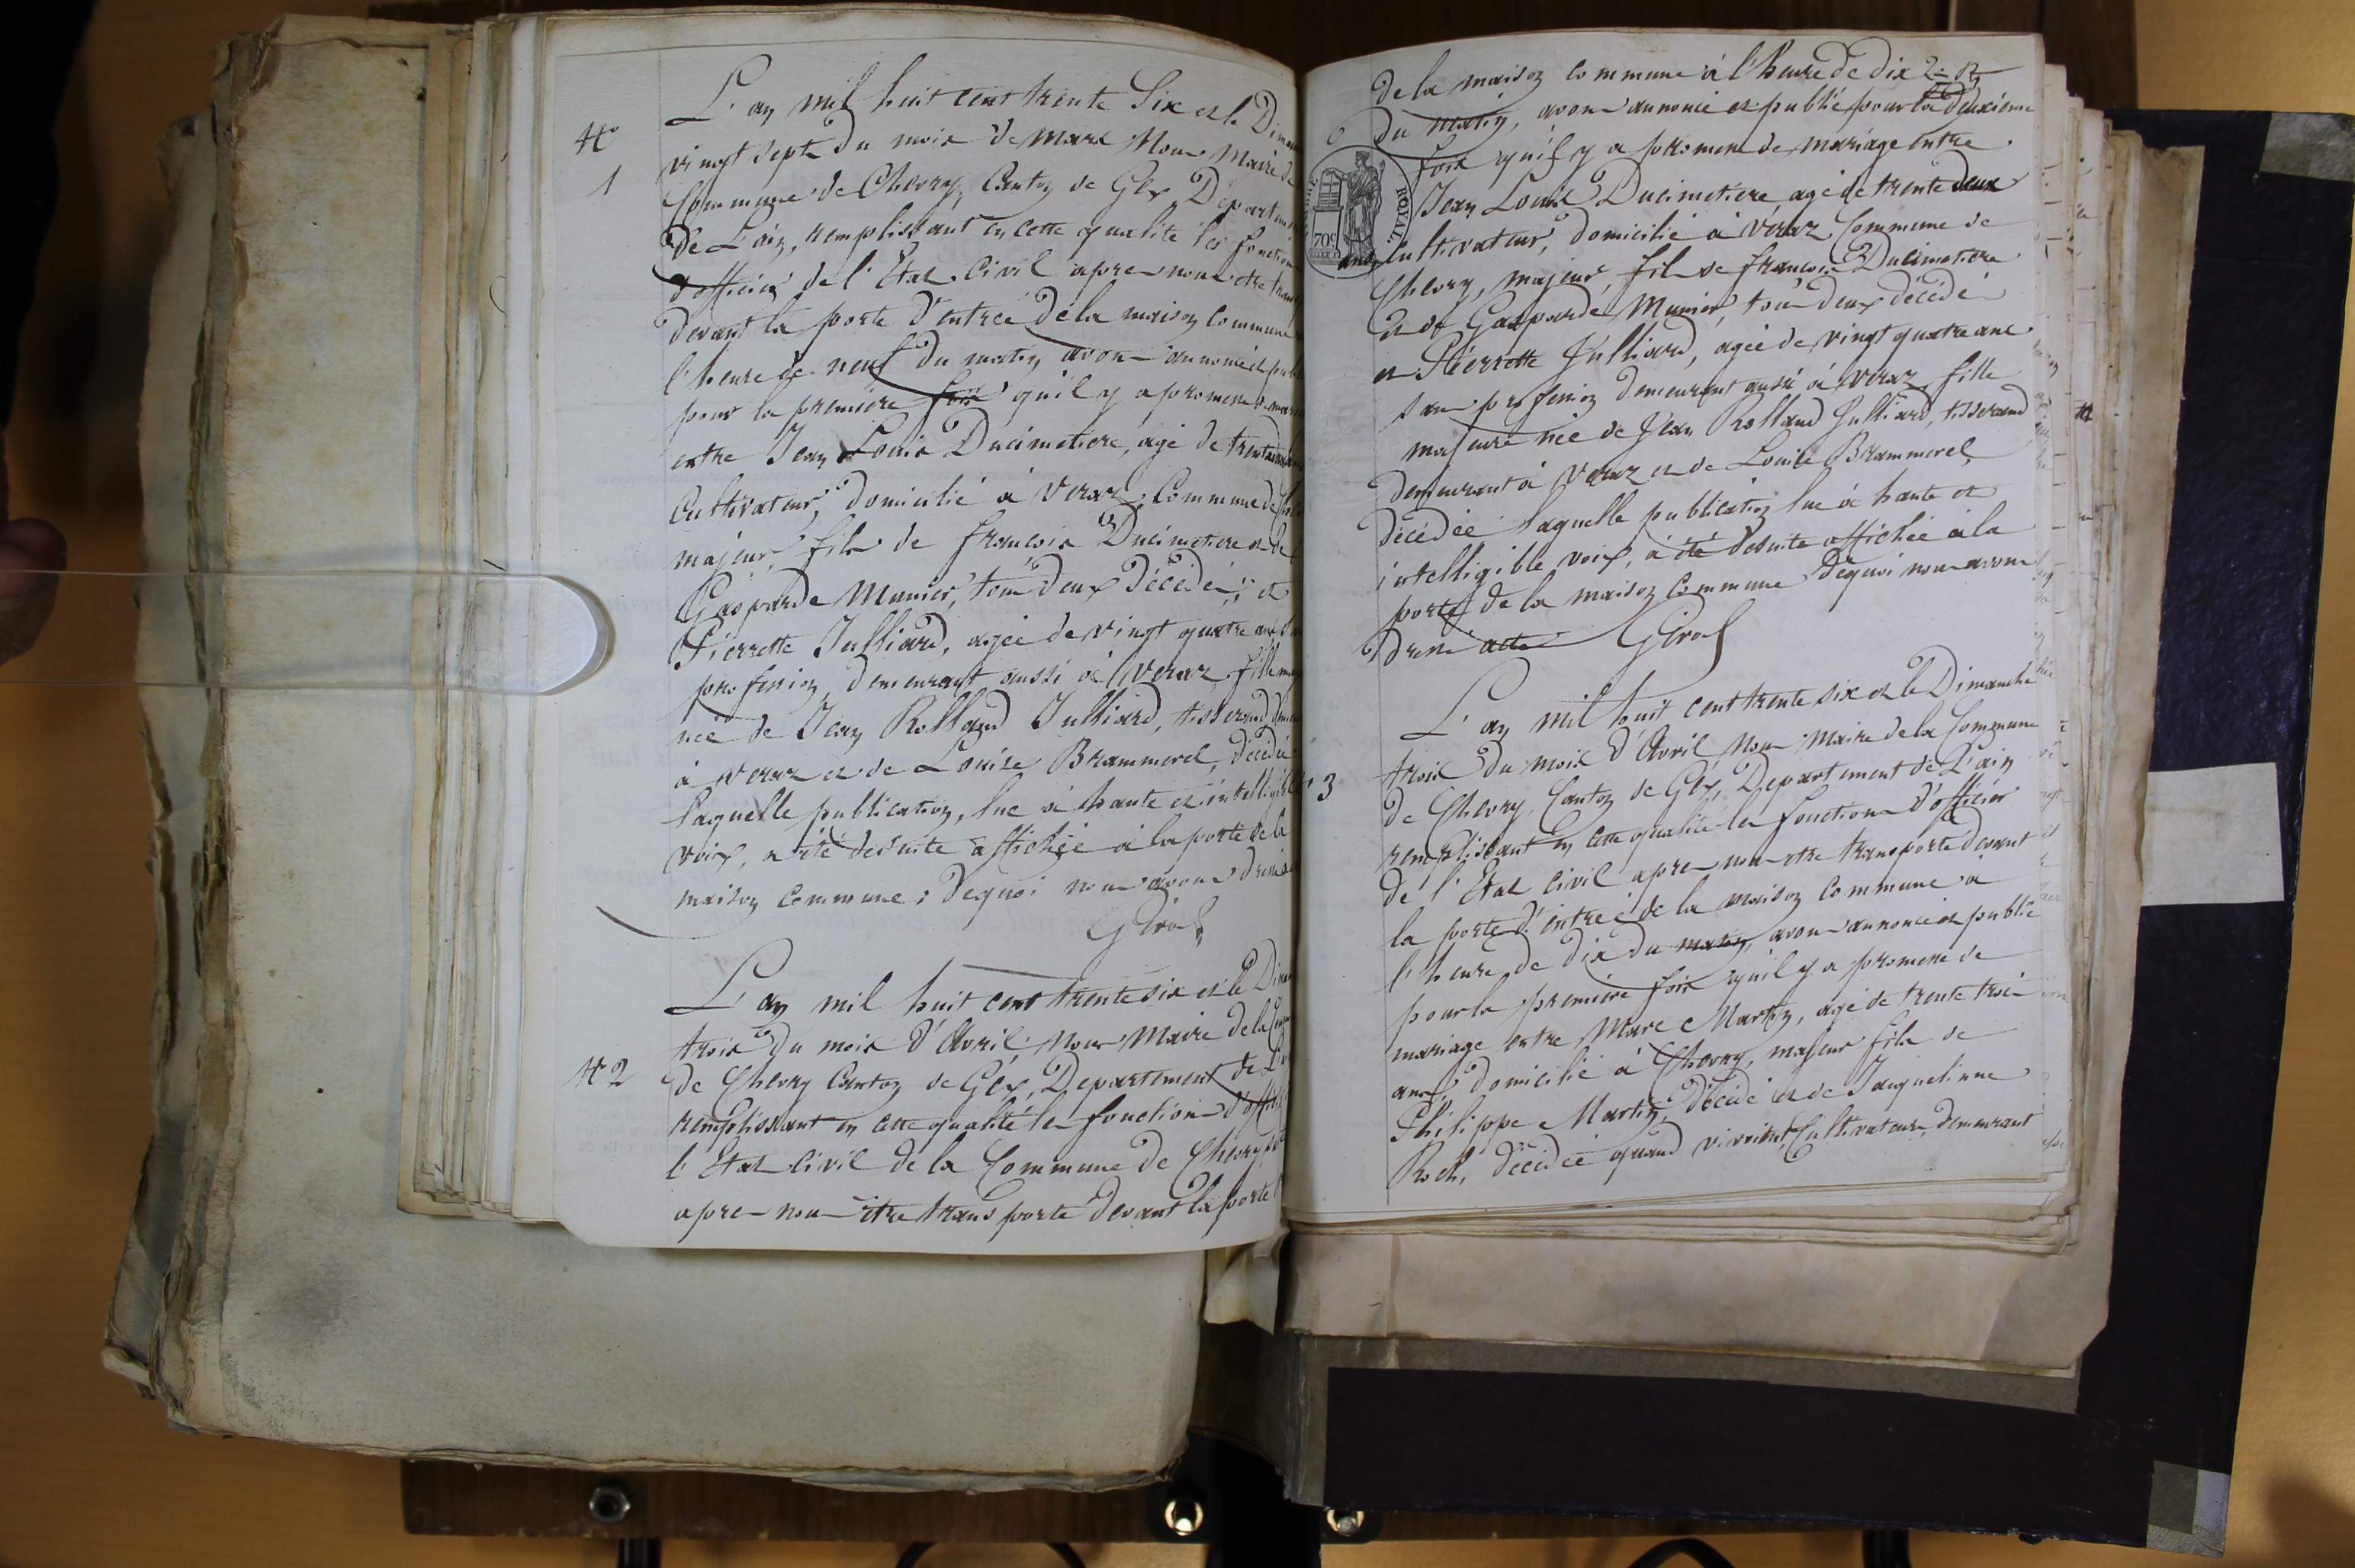 L'an mil huit cent trente Six et le Diman
N°
1
vingt sept du mois de Mars Nous Maire de
Commune de Chevry, Canton de Gex Départemen
de L'ain, remplissant en cette qualité les fonction
d'officier de l'Etat Civil apres nous etre trans
devant la porte d'entrée de la maison Commune
l'heure de neuf du matin, avons annoncé et publ
pour la première fois qu'il y a promesse de mari
entre Jean Louis Ducimetiere, agé de trente
Cultivateur, domicilié à Veraz, Commune de
majeur, fils de françois Ducimetiere et de
Gasparde Munier, tous deux décédés; et
Pierrette Julliard, agée de vingt quatre ans
profession, demeurant aussi à Veraz, fille ma
née de Jean Rolland Julliard, tisserand, deme
à Veraz et de Louise Brammerel, décédée
Laquelle publication, lue à haute et intelligible
voix, a été desuite affichée à la porte de la
maison Commune; dequoi nous avons dressé
Girod
L'an mil huit cent trente six et le Dima
trois du mois d'Avril, Nous Maire de la Com
N° 2
de Chevry Canton de Gex, Departement de L'ai
remplissant en cette qualité les fonctions d'offici
l'Etat Civil de la Commune de Chevry,
apres nous etre transporté devant la porte
de la maison Commune à l'heure de dix
du matin, avons annoncé et publié pour la deuxieme
fois qu'il y a promesse de mariage entre
TIMBRE ROYAL
70c
Jean Louis Ducimetiere agé de trente deux
ans Cultivateur, domicilié à Veraz Commune de
Chevry, majeur, fils de françois Ducimetiere
et de Gasparde Munier, tous deux décédés
et Pierrette Julliard, agée de vingt quatre ans
sans profession demeurant aussi à Veraz, fille
majeure née de Jean Rolland Julliard, tisserand
demeurant à Veraz et de Louise Brammerel,
décédée laquelle publication lue à haute et
intelligible voix, a été desuite affichée à la
porte de la maison Commune dequoi nous avons
dressé acte Girod
L'an mil huit cent trente six et le Dimanche
trois du mois d'Avril Nous Maire de la Commune
3
de Chevry, Canton de Gex, Departement de L'ain
remplissant en cette qualité les fonctions d'officier
de l'Etat Civil apres nous etre transporté devant
la porte d'entrée de la maison Commune à
l'heure de dix du matin, avons annoncé et publié
pour la première fois qu'il y a promesse de
mariage entre Marc Martin, agé de trente trois
ans, domicilié à Chevry, majeur fils de
Philippe Martin, décédé et de Jaquelinne
Roch, décédée quand vivoient Cultivateurs, demeurant